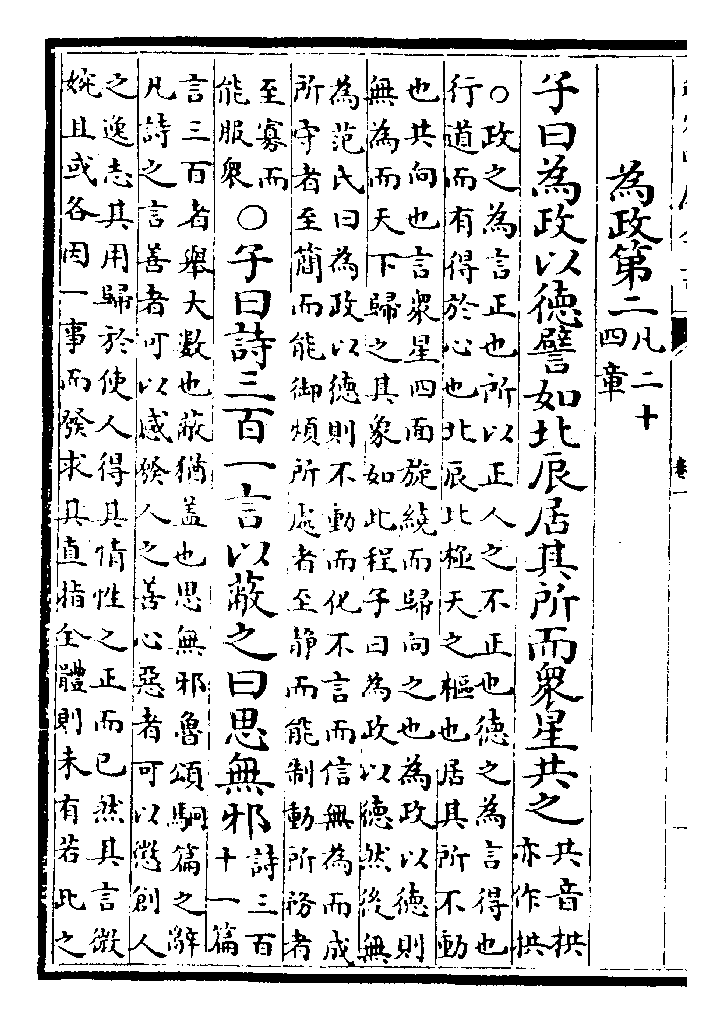 為政第二凡二十
四章
子曰為政以德譬如北辰居其所而眾星共之共音拱
亦作拱
○政之為言正也所以正人之不正也德之為言得也
行道而有得於心也北辰北極天之樞也居其所不動
也共向也言眾星四面旋繞而歸向之也為政以德則
無為而天下歸之其象如此程子曰為政以德然後無
為范氏曰為政以德則不動而化不言而信無為而成
所守者至簡而能御煩所處者至靜而能制動所務者
至寡而
能服眾
○子曰詩三百一言以蔽之曰思無邪詩三百
十一篇
言三百者舉大數也蔽猶蓋也思無邪魯頌駉篇之辭
凡詩之言善者可以感發人之善心惡者可以懲創人
之逸志其用歸於使人得其情性之正而已然其言微
婉且或各因一事而發求其直指全體則未有若此之